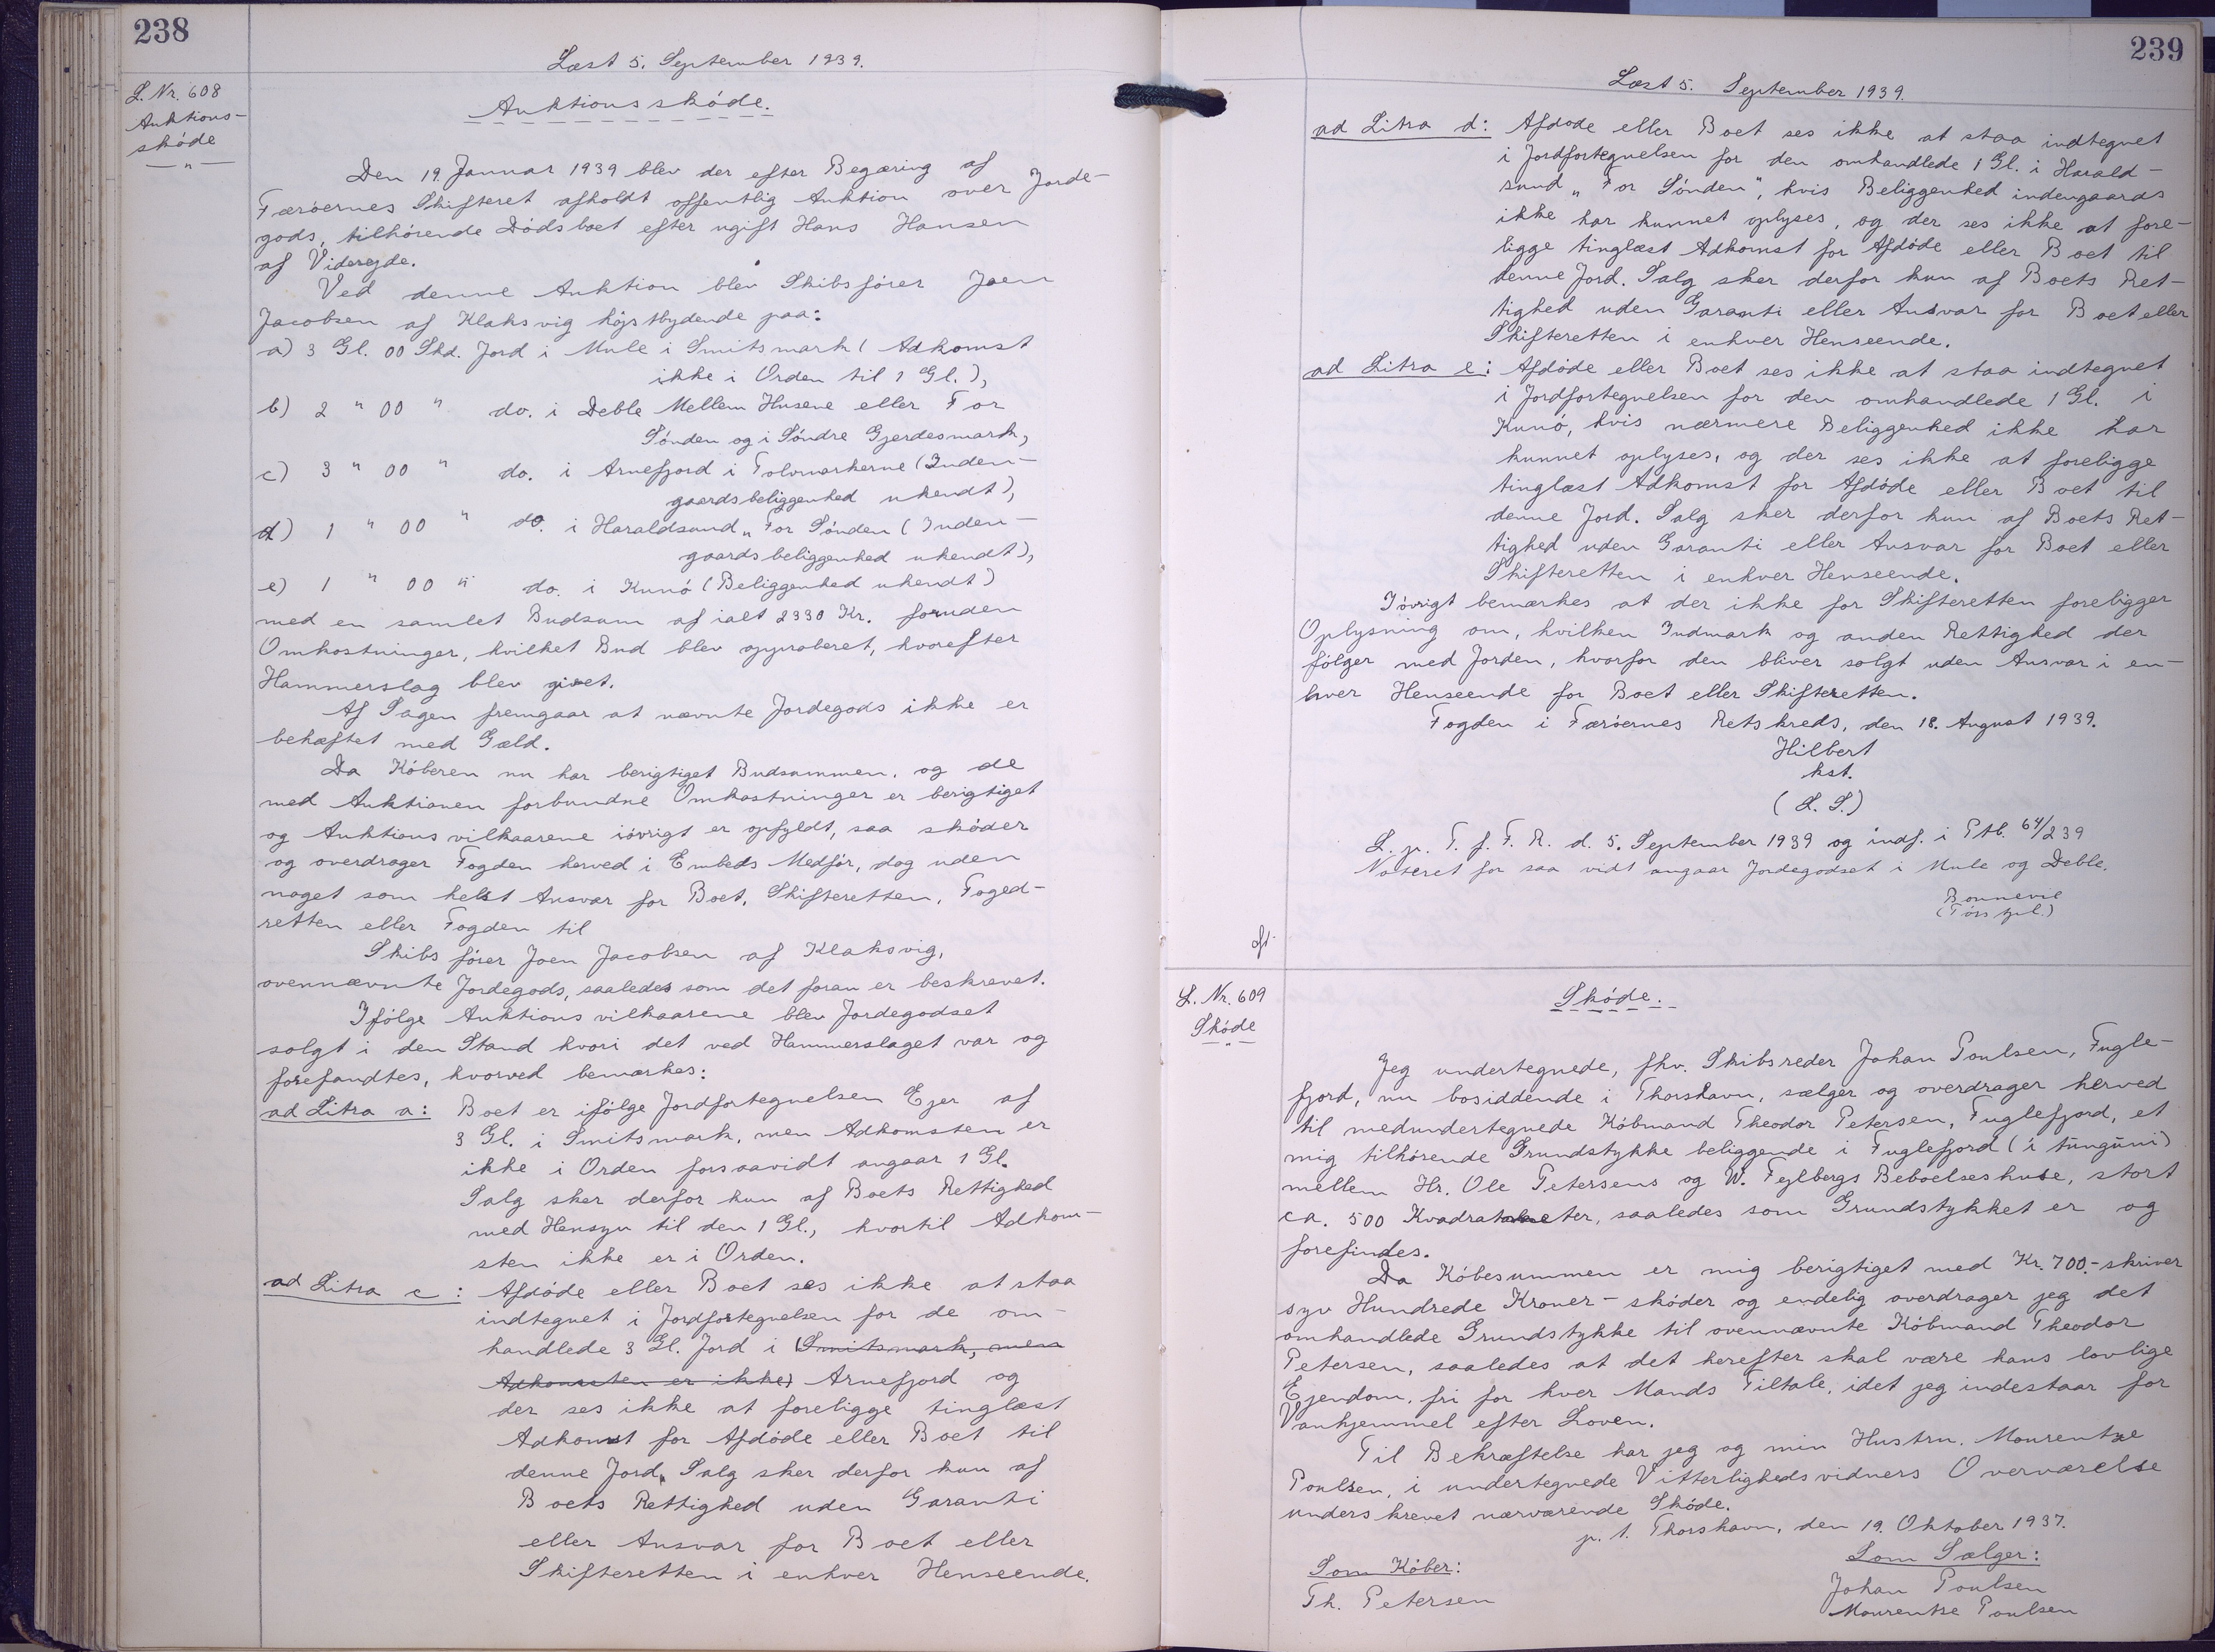 238
Læst 5. September 1939.
L. Nr. 608
Auktions-
skóde
— " —
Auktionsskóde.
Den 19. Januar 1939 blev der efter Begæring af
Færóernes Skifteret afholdt offentlig Auktion over Jorde-
gods, tilhórende Dódsboet efter ugift Hans Hansen
af Viderejde.
Ved denne Auktion blev Skibsfórer Joen
Jacobsen af Klaksvig hójstbydende paa:
a) 3 Gl. 00 Skd. Jord i Mule i Smitsmark (Adkomst
ikke i Orden til 1 Gl.),
b) 2 " 00 " do. i Deble Mellem Husene eller For
Sónden og i Sóndre Gjerdesmark,
c) 3 " 00 " do. i Arnefjord i Tolvmarkerne (Inden-
gaardsbeliggenhed ukendt),
d) 1 " 00 " do. i Haraldsund „For Sónden (Inden-
gaardsbeliggenhed ukendt),
e) 1 " 00 " do. i Kunó (Beliggenhed ukendt)
med en samlet Budsum af ialt 2330 Kr. foruden
Omkostninger, hvilket Bud blev approberet, hvorefter
Hammerslag blev givet.
Af Sagen fremgaar at nævnte Jordegods ikke er
behæftet med Gæld.
Da Kóberen nu har berigtiget Budsummen, og de
med Auktionen forbundne Omkostninger er berigtiget
og Auktionsvilkaarene ióvrigt er opfyldt, saa skóder
og overdrager Fogden herved i Embeds Medfór, dog uden
noget som helst Ansvar for Boet, Skifteretten, Foged-
retten eller Fogden til
Skibsfórer Joen Jacobsen af Klaksvig,
ovennævnte Jordegods, saaledes som det foran er beskrevet.
Ifólge Auktionsvilkaarene blev Jordegodset
solgt i den Stand hvori det ved Hammerslaget var og
forefandtes, hvorved bemærkes:
ad Litra a: Boet er ifólge Jordfortegnelsen Ejer af
3 Gl. i Smitsmark, men Adkomsten er
ikke i Orden forsaavidt angaar 1 Gl.
Salg sker derfor kun af Boets Rettighed
med Hensyn til den 1 Gl., hvortil Adkom-
sten ikke er i Orden.
ad Litra c: Afdóde eller Boet ses ikke at staa
indtegnet i Jordfortegnelsen for de om-
handlede 3 Gl. Jord i (Smitsmark, men
Adkomsten er ikke) Arnefjord og
der ses ikke at foreligge tinglæst
Adkomst for Afdóde eller Boet til
denne Jord. Salg sker derfor kun af
Boets Rettighed uden Garanti
eller Ansvar for Boet eller
Skifteretten i enhver Henseende.
239
Læst 5. September 1939.
ad Litra d: Afdode eller Boet ses ikke at staa indtegnet
i Jordfortegnelsen for den omhandlede 1 Gl. i Harald-
sund „For Sónden", hvis Beliggenhed indengaards
ikke har kunnet oplyses, og der ses ikke at fore-
ligge tinglæst Adkomst for Afdóde eller Boet til
denne Jord. Salg sker derfor kun af Boets Ret-
tighed uden Garanti eller Ansvar for Boet eller
Skifteretten i enhver Henseende.
ad Litra e: Afdóde eller Boet ses ikke at staa indtegnet
i Jordfortegnelsen for den omhandlede 1 Gl. i
Kunó, hvis nærmere Beliggenhed ikke har
kunnet oplyses, og der ses ikke at foreligge
tinglæst Adkomst for Afdóde eller Boet til
denne Jord. Salg sker derfor kun af Boets Ret-
tighed uden Garanti eller Ansvar for Boet eller
Skifteretten i enhver Henseende.
Ióvrigt bemærkes at der ikke for Skifteretten foreligger
Oplysning om, hvilken Indmark og anden Rettighed der
fólger med Jorden, hvorfor den bliver solgt uden Ansvar i en-
hver Henseende for Boet eller Skifteretten.
Fogden i Færóernes Retskreds, den 18. August 1939.
Hilbert
kst.
(L. S.)
L. p. T. f. F. R. d. 5. September 1939 og indf. i Ptb. 64/239
Noteret for saa vidt angaar Jordegodset i Mule og Deble.
Bonnevie
L. Nr. 609
Skóde
— " —
Skóde.
Jeg undertegnede, fhv. Skibsreder Johan Poulsen, Fugle-
fjord, nu bosiddende i Thorshavn, sælger og overdrager herved
til medundertegnede Kóbmand Theodor Petersen, Fuglefjord, et
mig tilhórende Grundstykke beliggende i Fuglefjord (í túnguni)
mellem Hr. Ole Petersens og W. Fejlbergs Beboelseshuse, stort
ca. 500 Kvadratmeter, saaledes som Grundstykket er og
forefindes.
Da Kóbesummen er mig berigtiget med Kr. 700.- skriver
syv Hundrede Kroner - skóder og endelig overdrager jeg det
omhandlede Grundstykke til ovennævnte Kóbmand Theodor
Petersen, saaledes at det herefter skal være hans lovlige
Ejendom, fri for hver Mands Tiltale, idet jeg indestaar for
Vanhjemmel efter Loven.
Til Bekræftelse har jeg og min Hustru, Mourentze
Poulsen, i undertegnede Vitterlighedsvidners Overværelse
underskrevet nærværende Skóde.
p. t. Thorshavn, den 19. Oktober 1937.
Som Kóber:
Th. Petersen
Som Sælger:
Johan Poulsen
Mourentse Poulsen